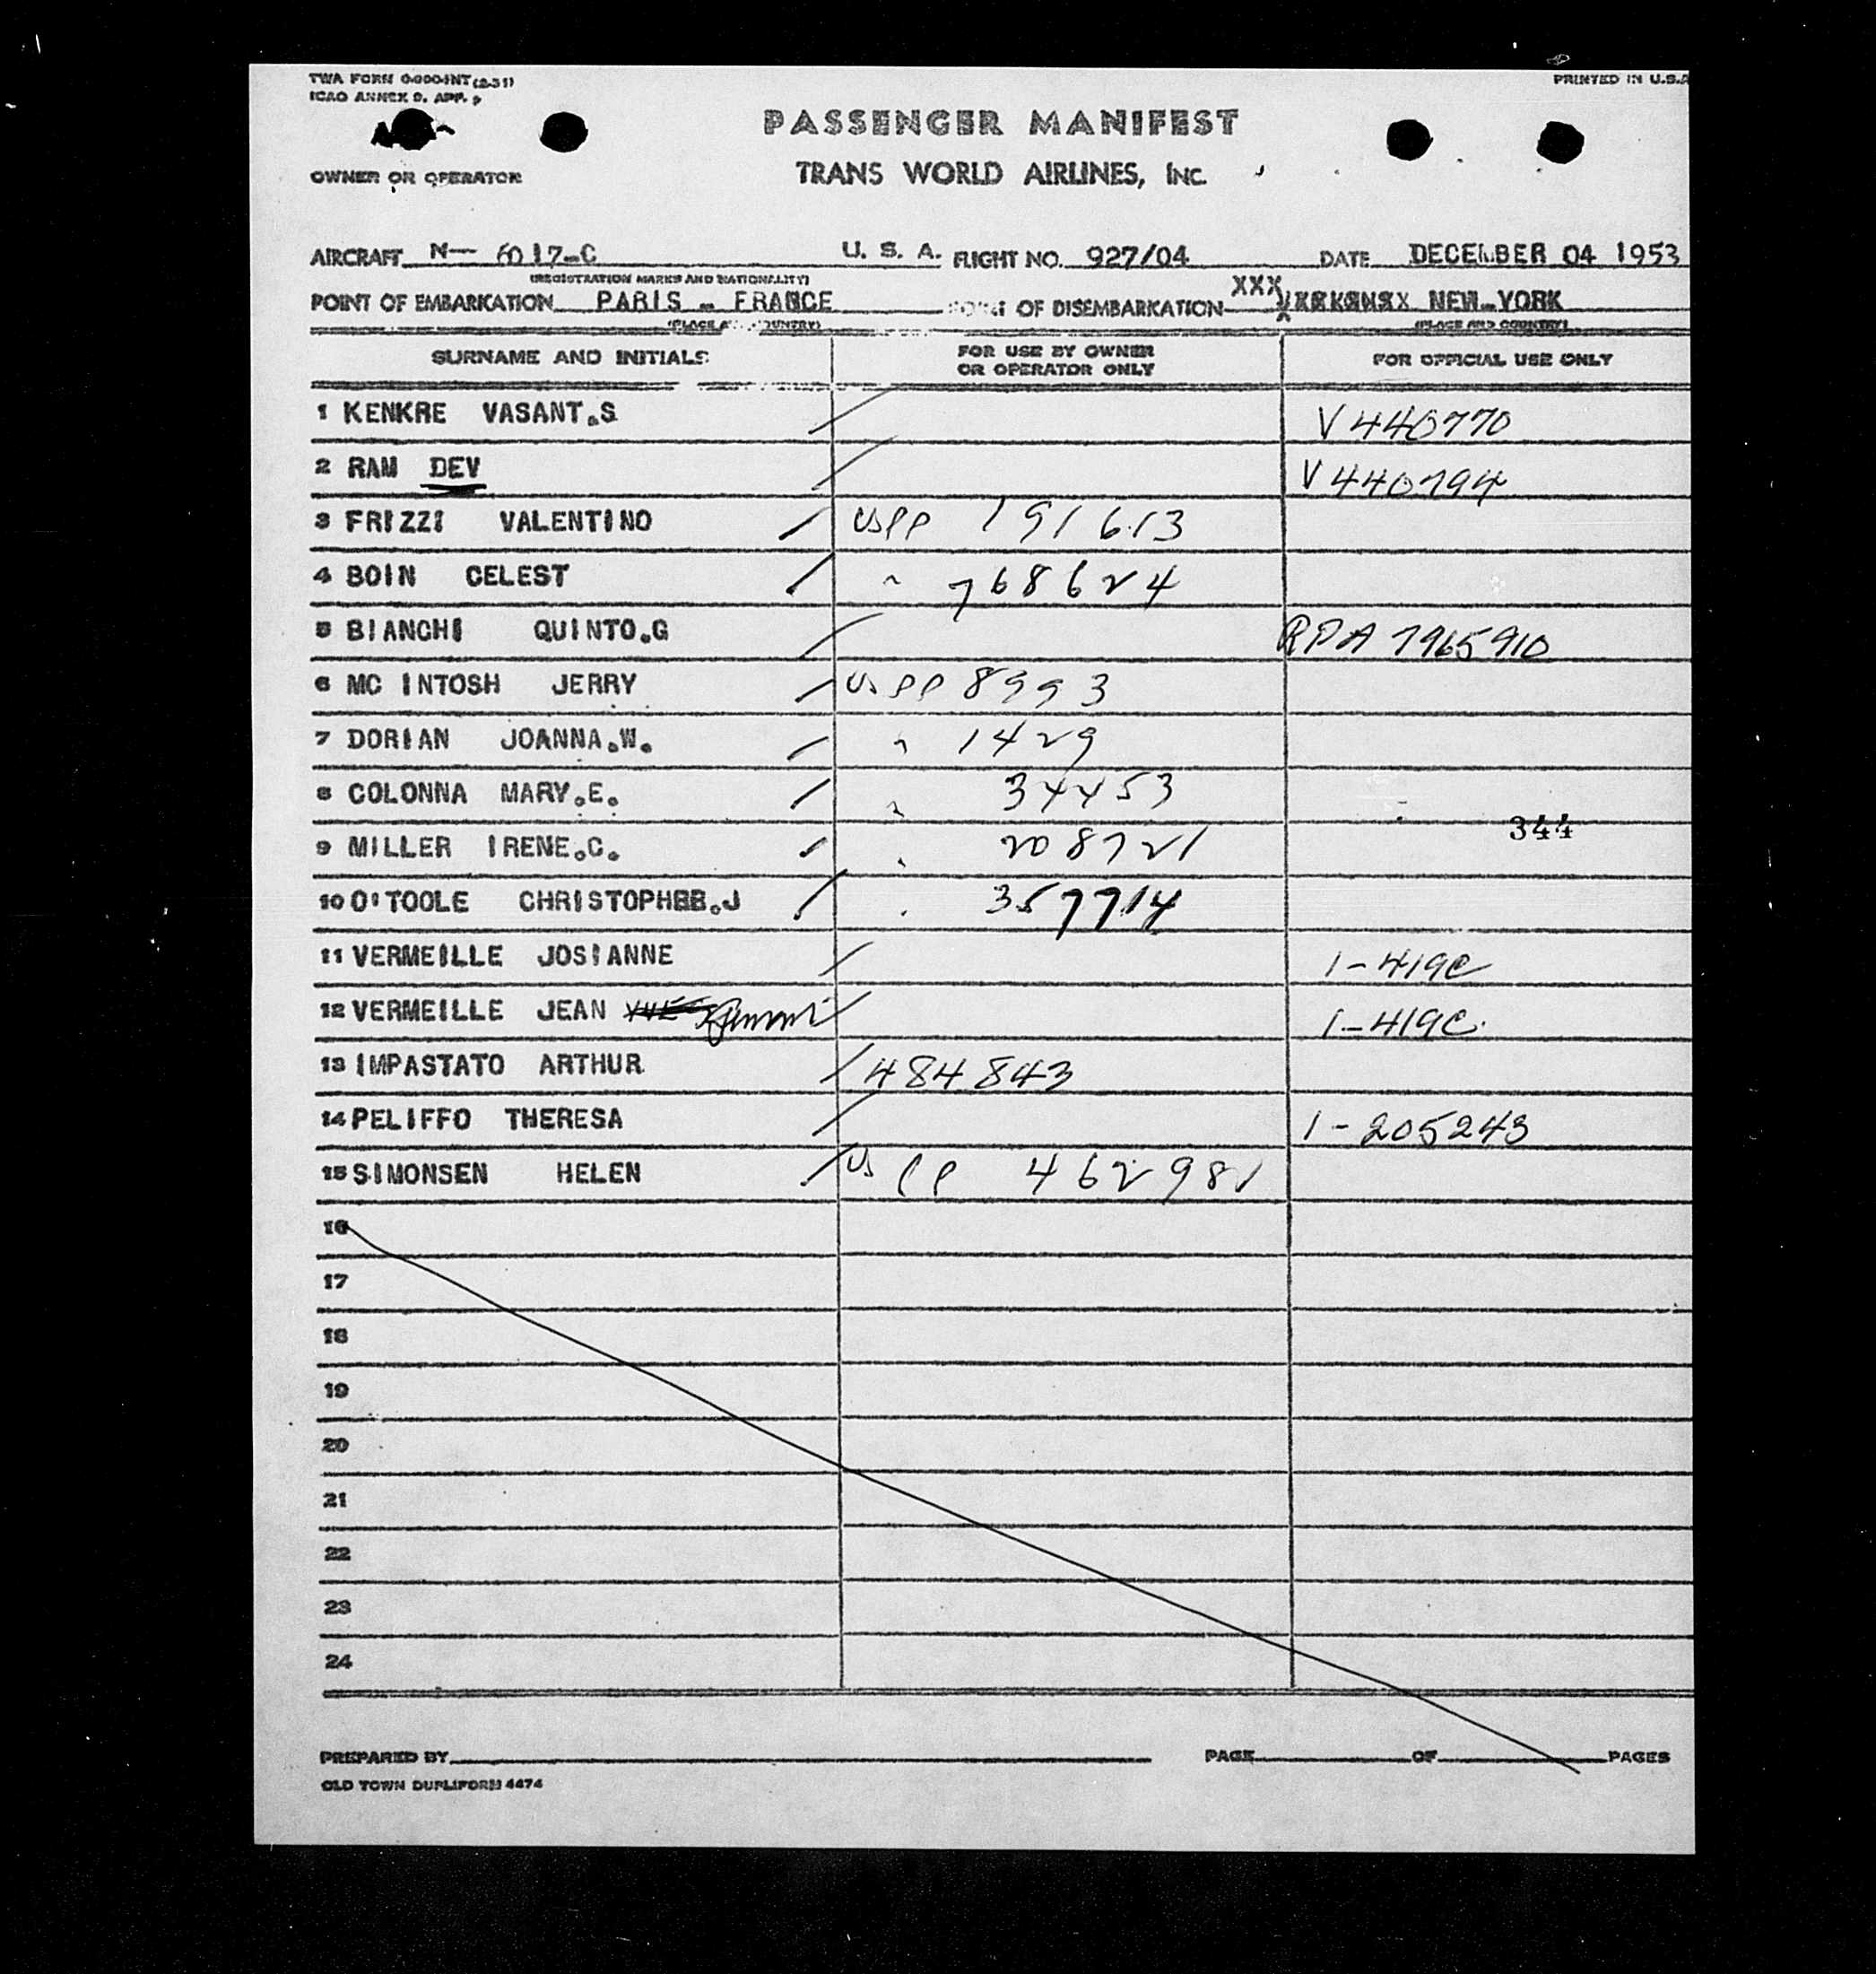 TWA FORM 0-900-INT (2-51)
PRINTED IN U.S.A
ICAO ANNEX 9, APP. 5
PASSENGER MANIFEST
TRANS WORLD AIRLINES, INC.
OWNER OR OPERATOR
AIRCRAFT N— 6017-C U. S. A. FLIGHT NO. 927/04 DATE DECEMBER 04 1953
(REGISTRATION MARKS AND NATIONALITY)
XXX
POINT OF EMBARKATION PARIS - FRANCE POINT OF DISEMBARKATION NEW-YORK
(PLACE AND COUNTRY) (PLACE AND COUNTRY)
SURNAME AND INITIALS FOR USE BY OWNER OR OPERATOR ONLY FOR OFFICIAL USE ONLY
1 KENKRE VASANT.S V 440770
2 RAM DEV V 440794
3 FRIZZI VALENTINO USPP 191613
4 BOIN CELEST " 768624
5 BIANCHI QUINTO.G RPA 7965910
6 MC INTOSH JERRY USPP 8993
7 DORIAN JOANNA.W. " 1429
8 COLONNA MARY.E. " 34453
344
9 MILLER IRENE.C. " 208721
10 O'TOOLE CHRISTOPHER.J " 357714
11 VERMEILLE JOSIANNE 1-419C
12 VERMEILLE JEAN YVES 1-419C.
13 IMPASTATO ARTHUR 484843
14 PELIFFO THERESA 1-205243
15 SIMONSEN HELEN USPP 462981
16
17
18
19
20
21
22
23
24
PREPARED BY PAGE OF PAGES
OLD TOWN DUPLIFORM 4474